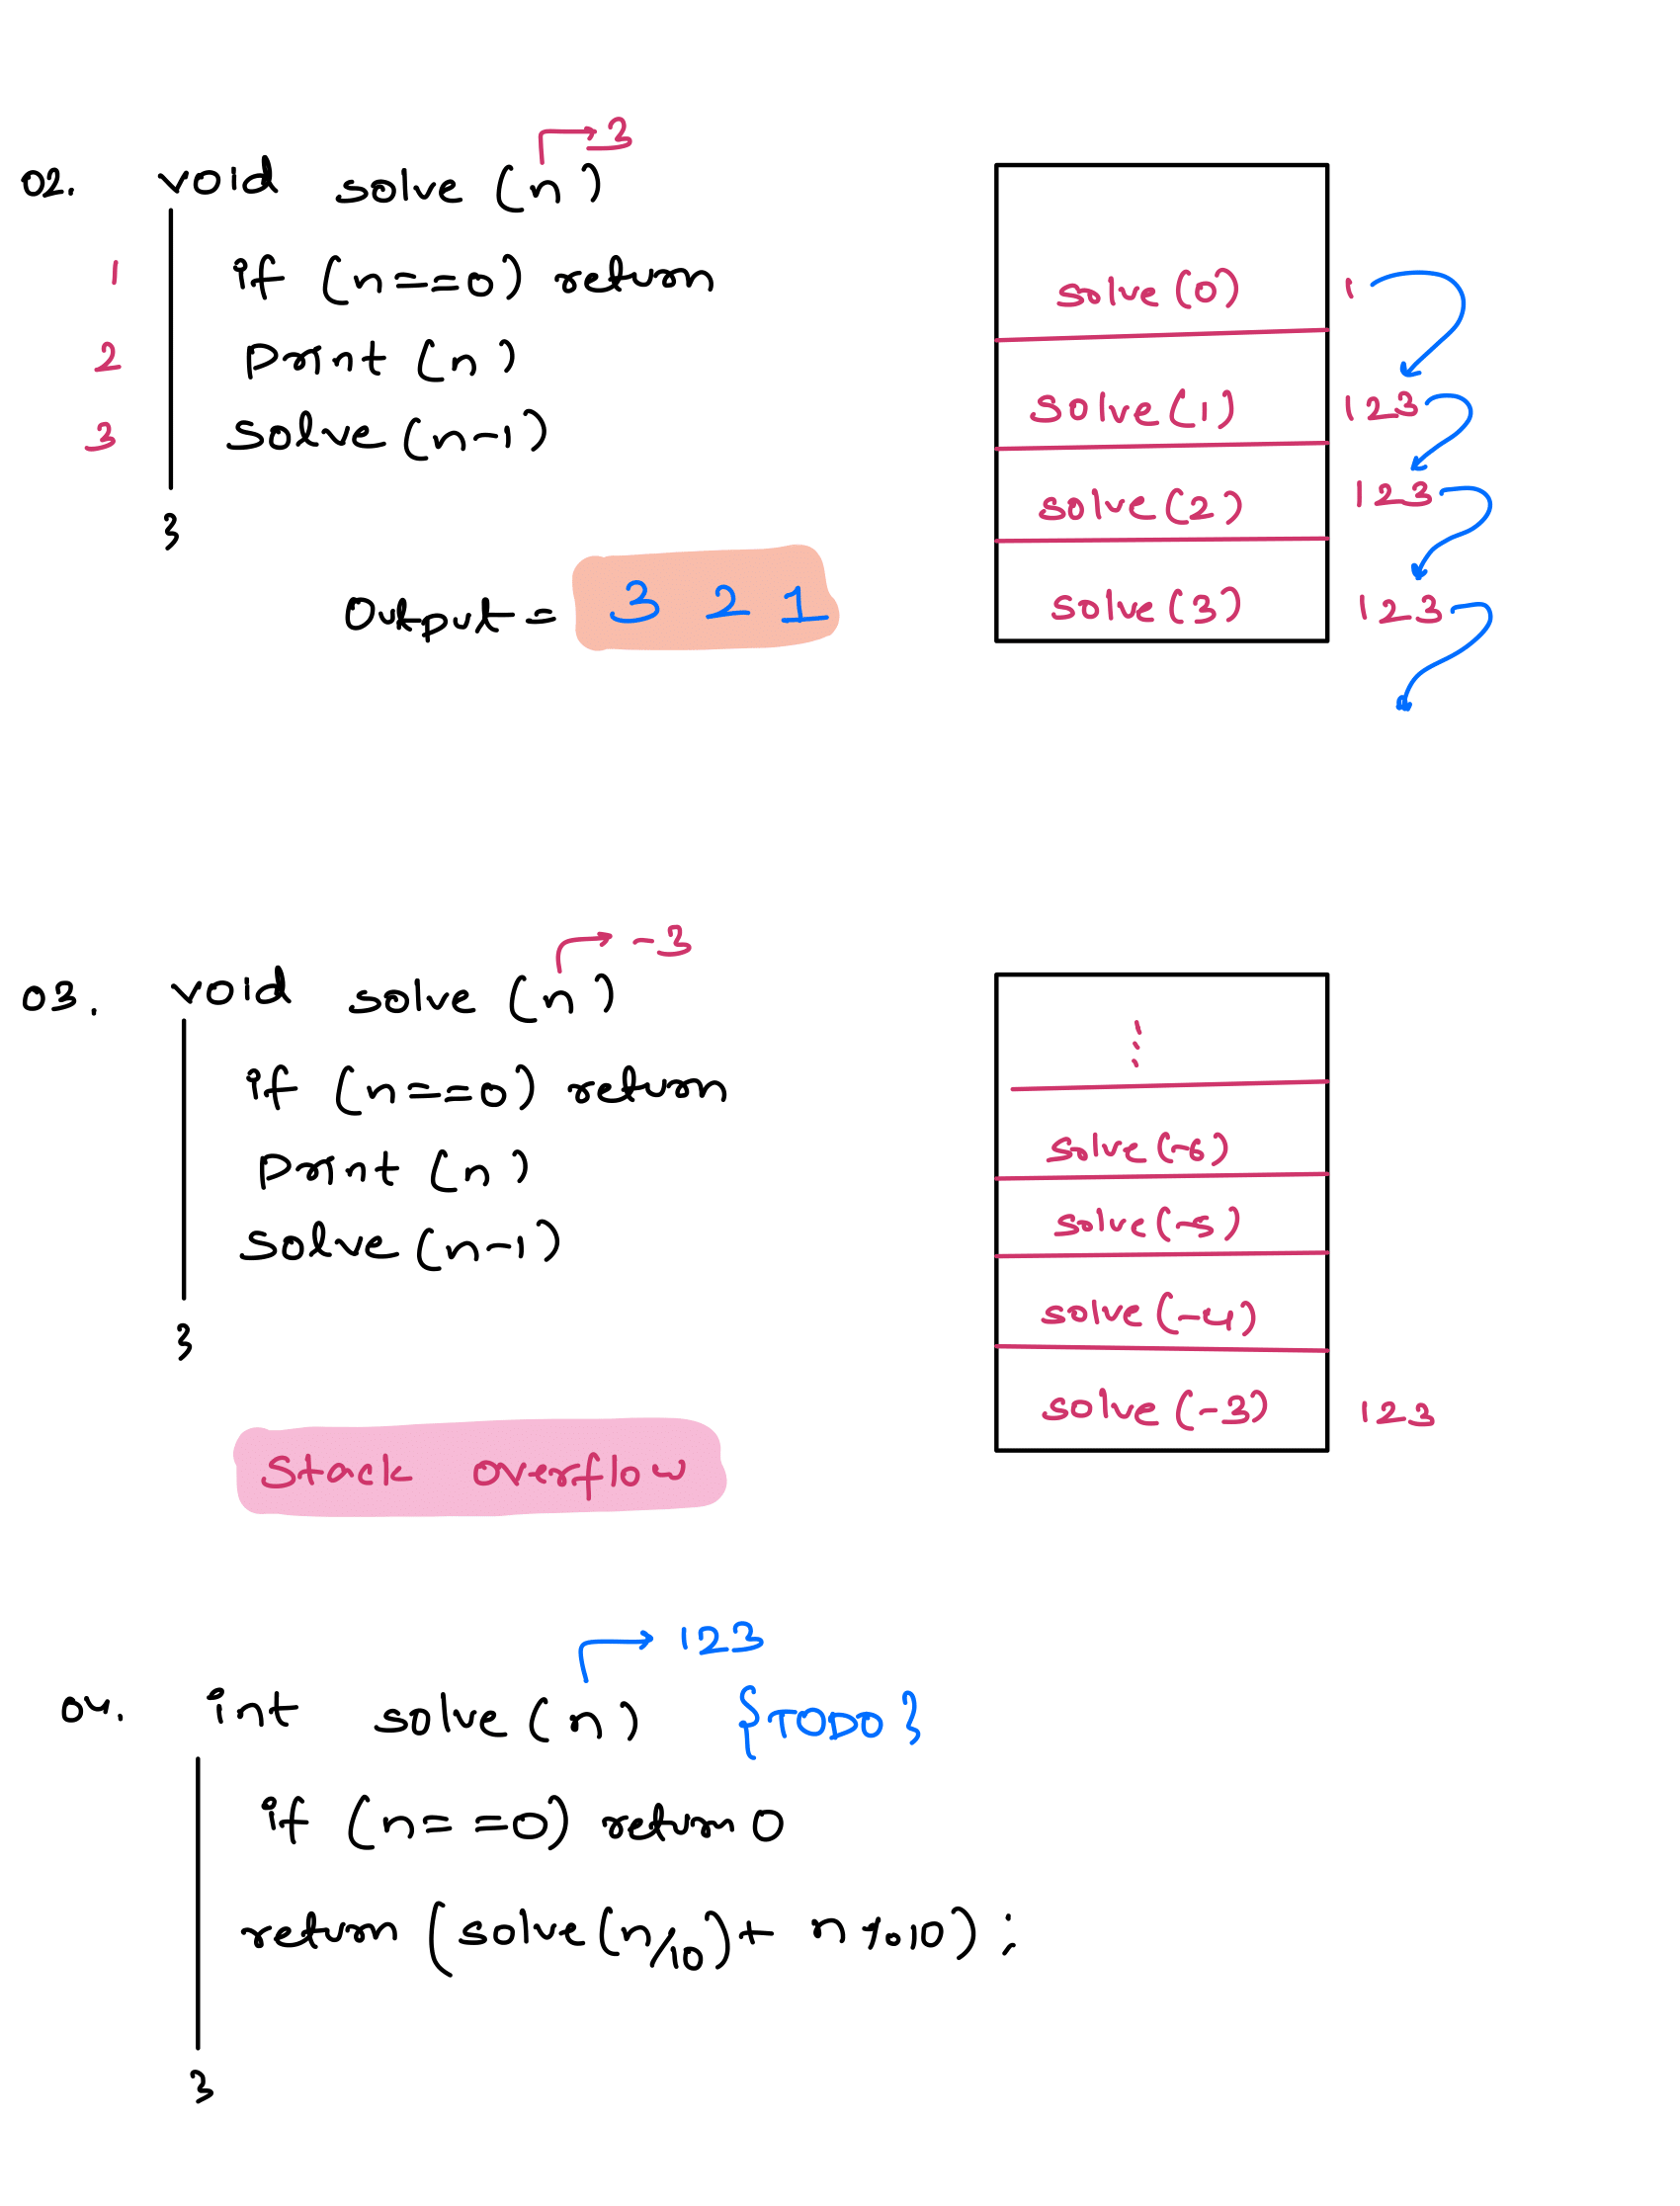 3
02. void solve (n)
1 if (n==0) return
2 print (n)
3 solve (n-1)
}
Output = 3 2 1
solve (0) 1
solve (1) 123
solve (2) 123
solve (3) 123
-3
03. void solve (n)
if (n==0) return
print (n)
solve (n-1)
}
Stack overflow
⋮
solve (-6)
solve (-5)
solve (-4)
solve (-3) 123
123
04. int solve (n) {TODO}
if (n==0) return 0
return (solve (n/10) + n%10);
}